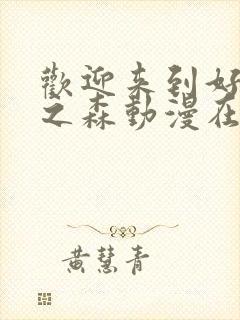 歡迎来到好
之森動漫在
黄慧青